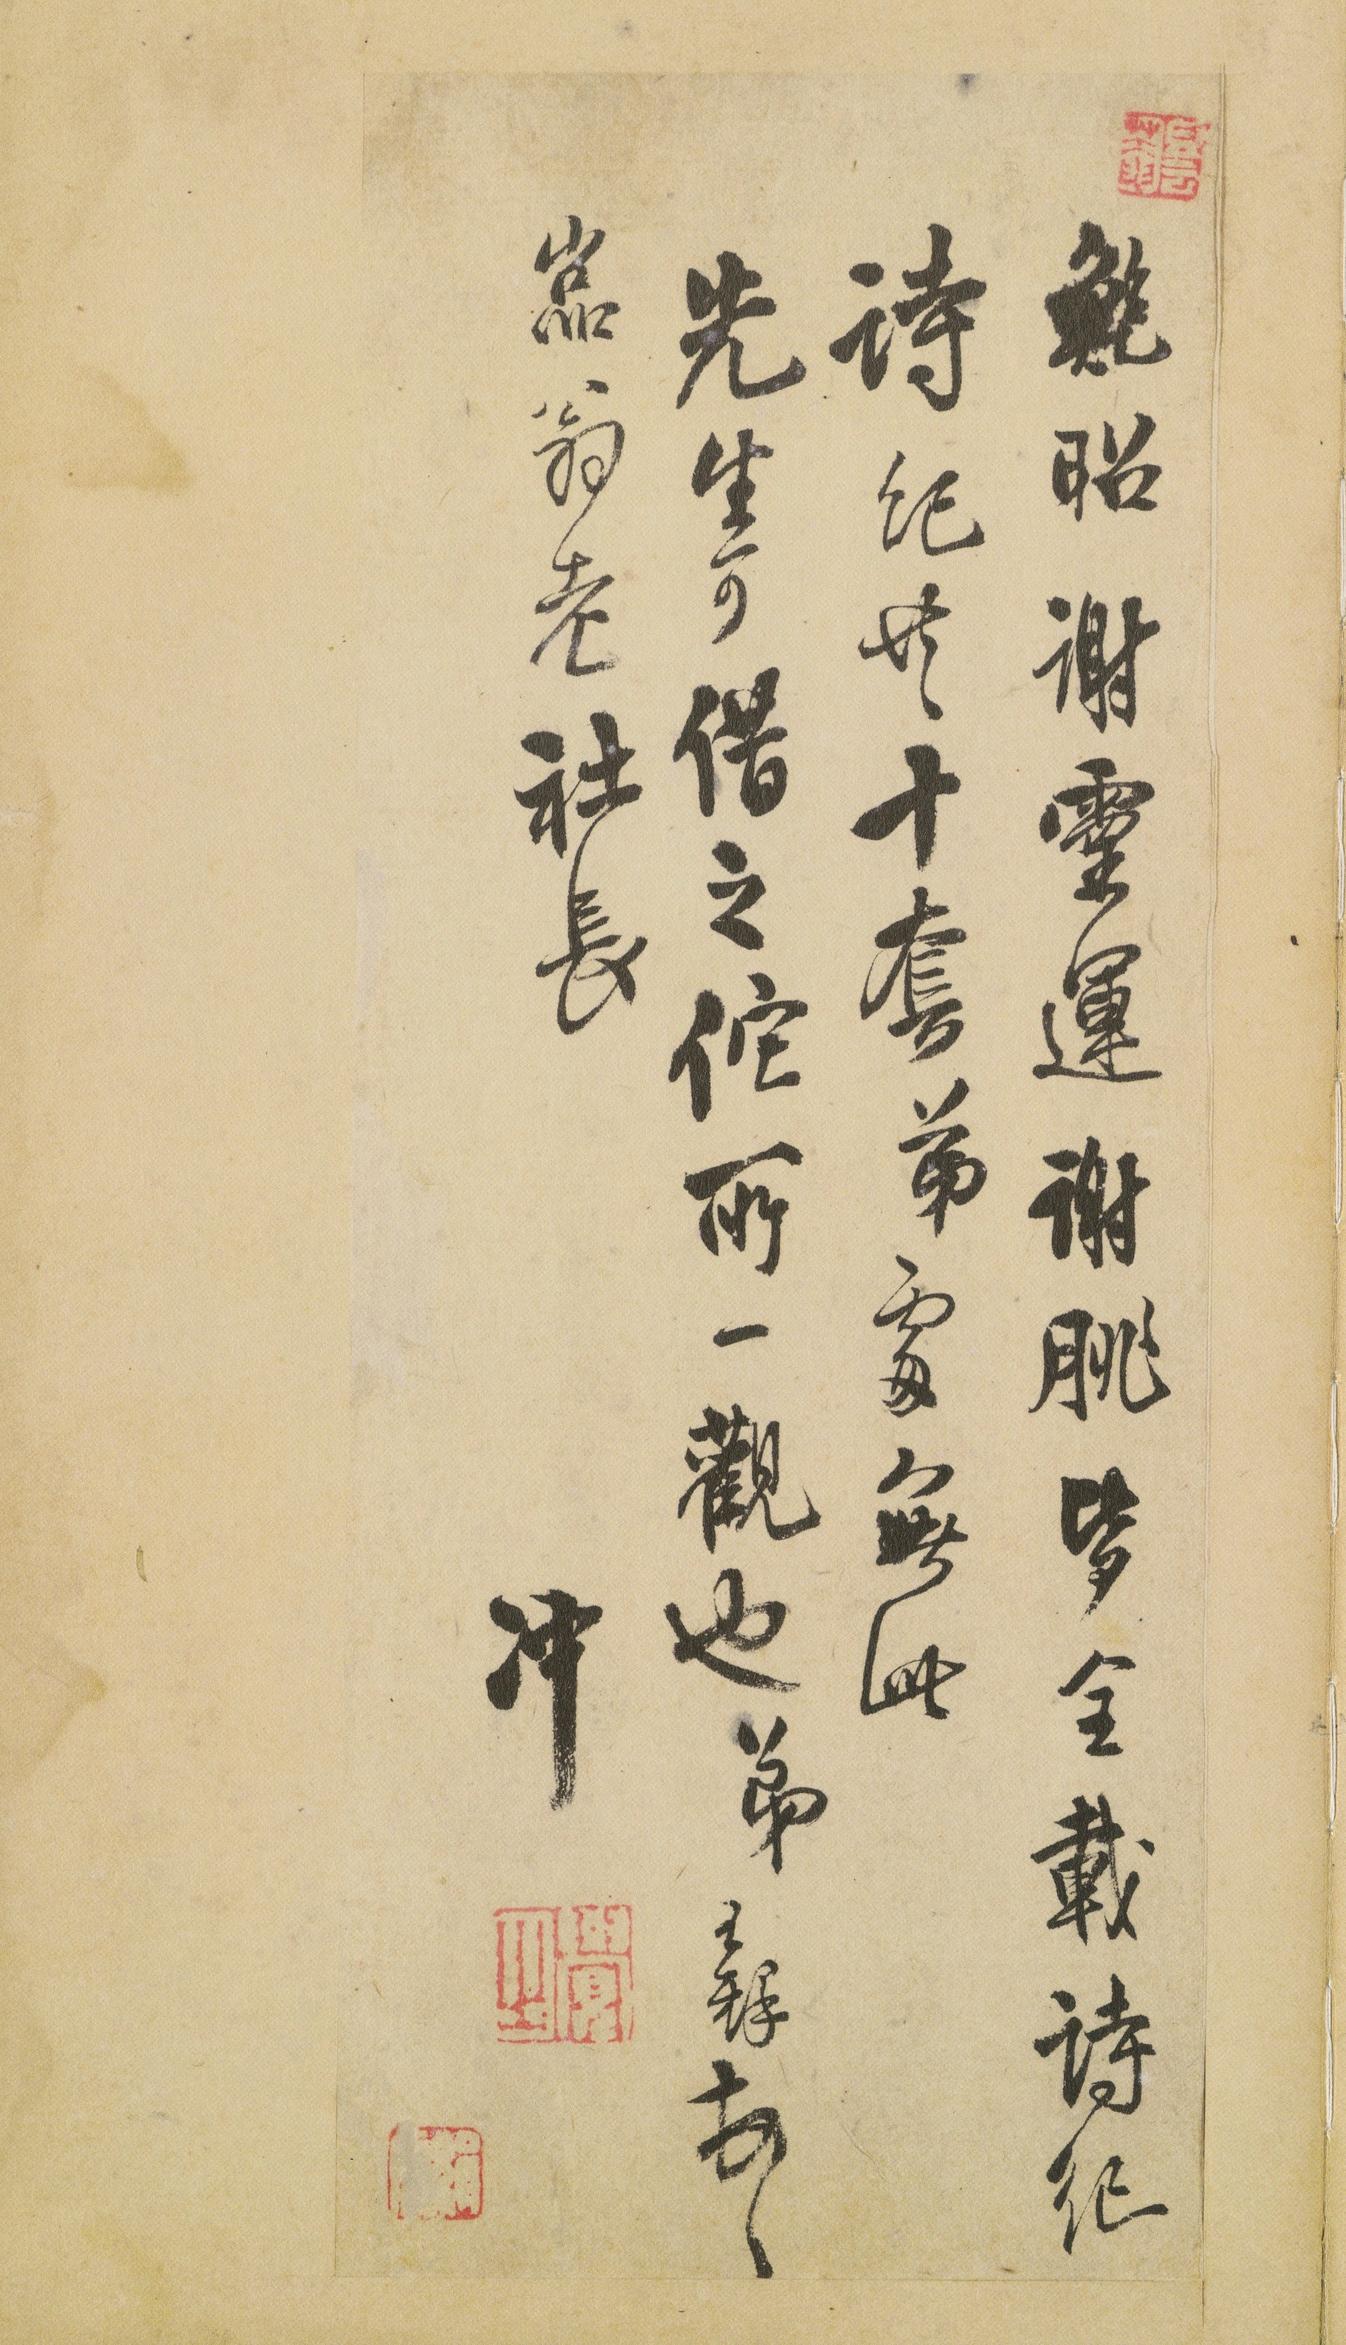 鮑昭謝靈運謝朓皆全載詩紀
詩紀共十套弟處無此
先生可借之佗所一觀也弟王鐸
嵓翁老社長
冲